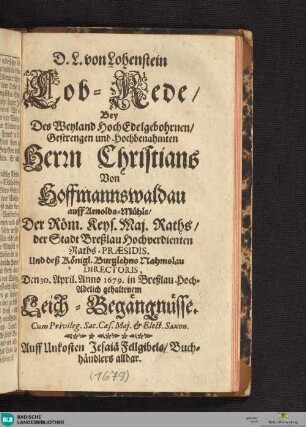 D. L. von Lohenstein
Lob-Rede/
Bey
Des Weyland HochEdelgebohrnen/
Gestrengen und Hochbenahmten
Herrn Christians
Von
Hoffmannswaldau
auff Arnolds-Mühle/
Der Röm. Keys. Maj. Raths/
der Stadt Breßlau Hochverdienten
Raths-PRÆSIDIS,
Und deß Königl. Burglehns Nahmslau
DIRECTORIS.
Den 30. April. Anno 1679. in Breßlau Hoch-
Adelich gehaltenem
Leich-Begängnüsse.
Cum Privileg. Sac. Cæs. Maj. & Elect. Saxon.
Auff Unkosten Jesaiä Fellgibels/ Buch-
händlers alldar.
(1679)
BLB
BADISCHE
LANDESBIBLIOTHEK
Baden-Württemberg